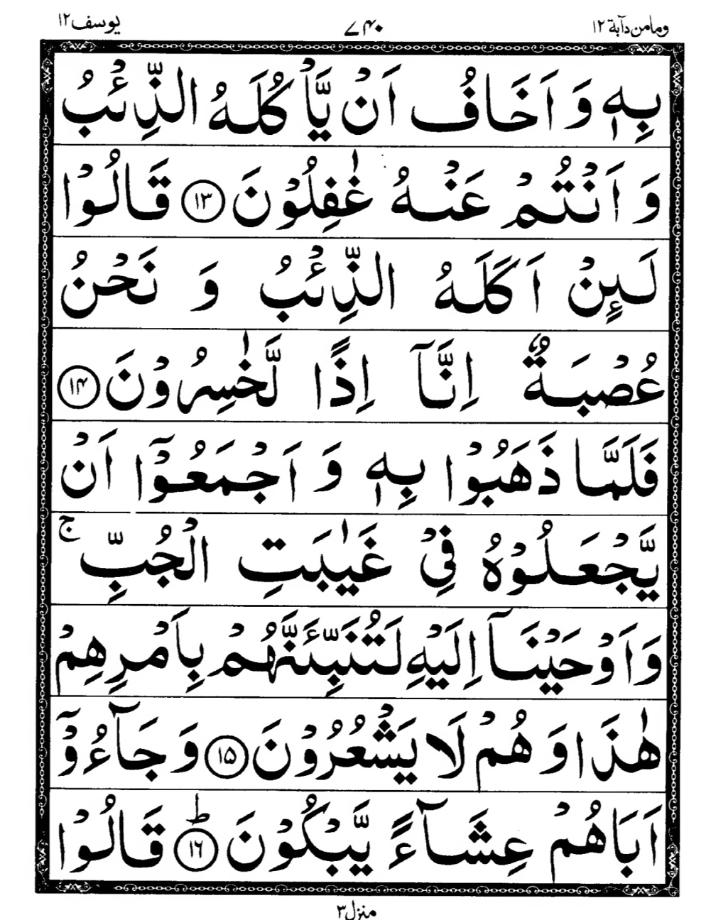 ومامن دآبة ١٢ ٧٤٠ يوسف ١٢
بِهٖ وَ اَخَافُ اَنْ يَّاْكُلَهُ الذِّئْبُ
وَ اَنْتُمْ عَنْهُ غٰفِلُوْنَ ⁝١٣ قَالُوْا
لَىِٕنْ اَكَلَهُ الذِّئْبُ وَ نَحْنُ
عُصْبَةٌ اِنَّاۤ اِذًا لَّخٰسِرُوْنَ ١٤
فَلَمَّا ذَهَبُوْا بِهٖ وَ اَجْمَعُوْۤا اَنْ
يَّجْعَلُوْهُ فِيْ غَيٰبَتِ الْجُبِّ ۚ
وَاَوْحَيْنَاۤ اِلَيْهِ لَتُنَبِّئَنَّهُمْ بِاَمْرِهِمْ
هٰذَا وَ هُمْ لَا يَشْعُرُوْنَ ١٥ وَ جَآءُوْۤ
اَبَاهُمْ عِشَآءً يَّبْكُوْنَ ؕ ١٦ قَالُوْا
منزل ٣